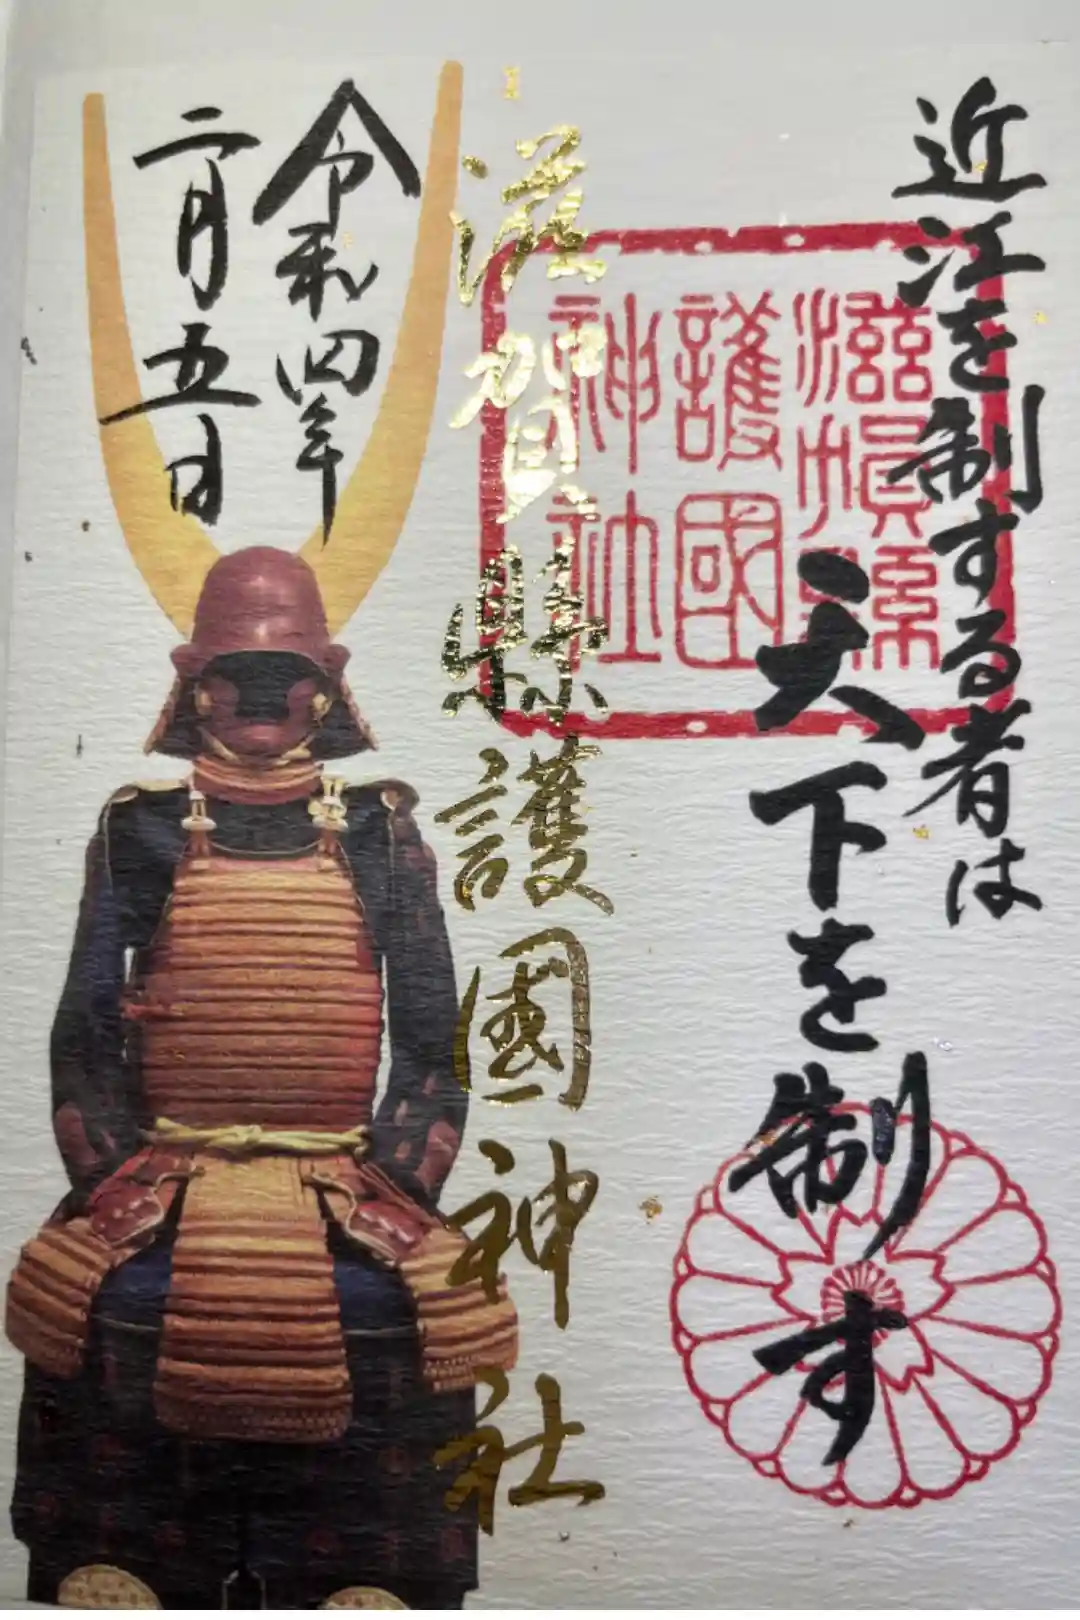 近江を制する者は
天下を制す
滋賀縣
護國
神社
滋賀縣護國神社
令和四年
二月五日